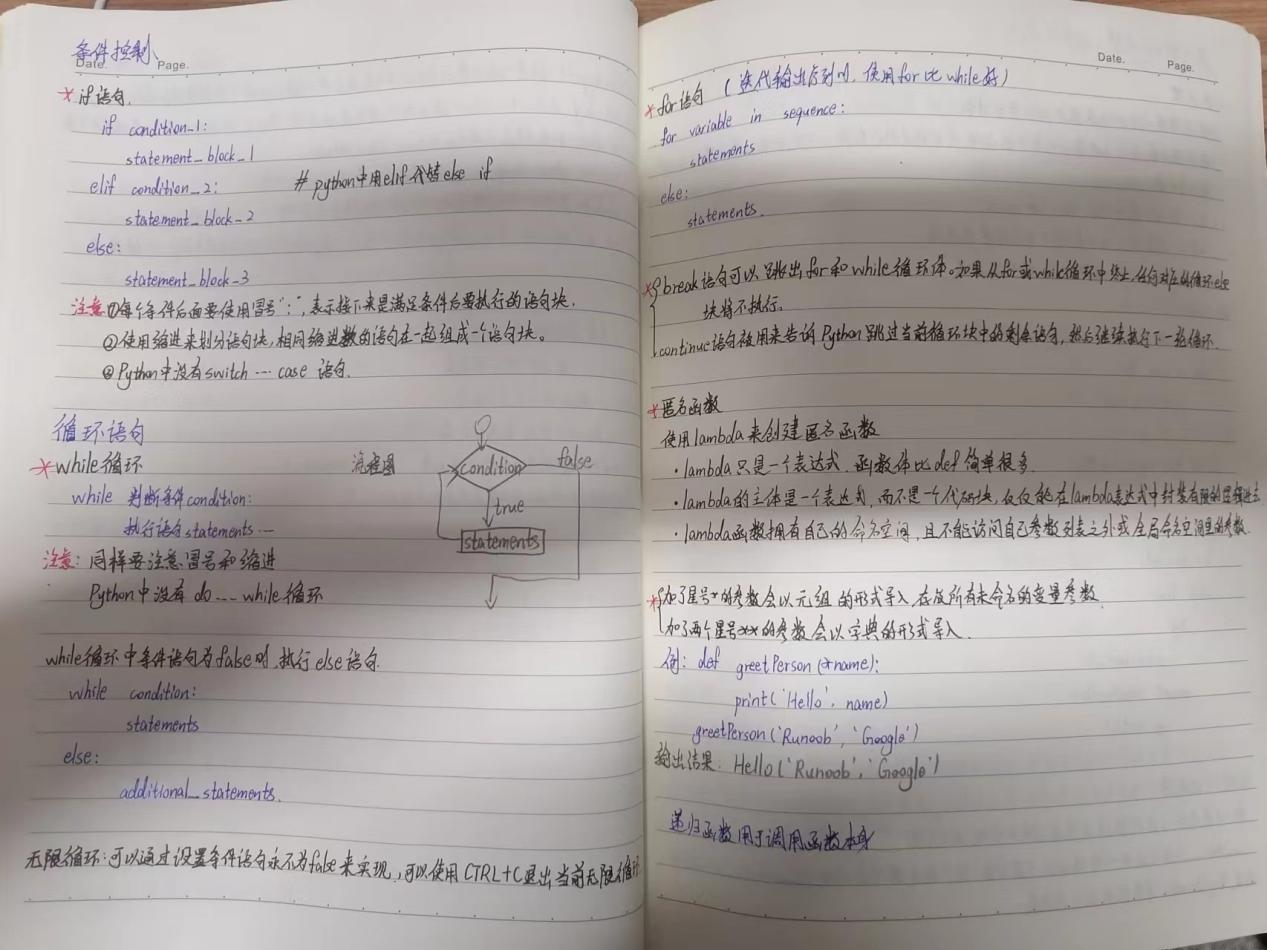 条件控制
Date. Page.
* if语句.
if condition_1:
statement_block_1
elif condition_2: # python中用elif代替else if
statement_block_2
else:
statement_block_3
注意①每个条件后面要使用冒号":",表示接下来是满足条件后要执行的语句块.
②使用缩进来划分语句块,相同缩进数的语句在一起组成一个语句块。
③Python中没有switch … case 语句.
循环语句
* while循环 流程图
while 判断条件condition:
执行语句statements …
condition
false
true
statements
注意: 同样要注意冒号和缩进
Python中没有do … while循环
while循环中条件语句为false时,执行else语句
while condition:
statements
else:
additional_statements.
无限循环:可以通过设置条件语句永不为false来实现,可以使用CTRL+C退出当前无限循环
Date. Page.
* for语句 (迭代输出序列时,使用for比while好)
for variable in sequence:
statements
else:
statements.
* break语句可以跳出for和while循环体。如果从for或while循环中终止,任何对应的循环else
块将不执行.
continue语句被用来告诉Python跳过当前循环块中的剩余语句,然后继续执行下一轮循环.
* 匿名函数
使用lambda来创建匿名函数
·lambda只是一个表达式.函数体比def简单很多.
·lambda的主体是一个表达式,而不是一个代码块,仅仅能在lambda表达式中封装有限的逻辑进去
·lambda函数拥有自己的命名空间,且不能访问自己参数列表之外或全局命名空间里的参数.
* 加了星号*的参数会以元组的形式导入,存放所有未命名的变量参数.
加了两个星号**的参数会以字典的形式导入.
例: def greetPerson(*name):
print('Hello', name)
greetPerson('Runoob', 'Google')
输出结果: Hello('Runoob', 'Google')
递归函数用于调用函数本身